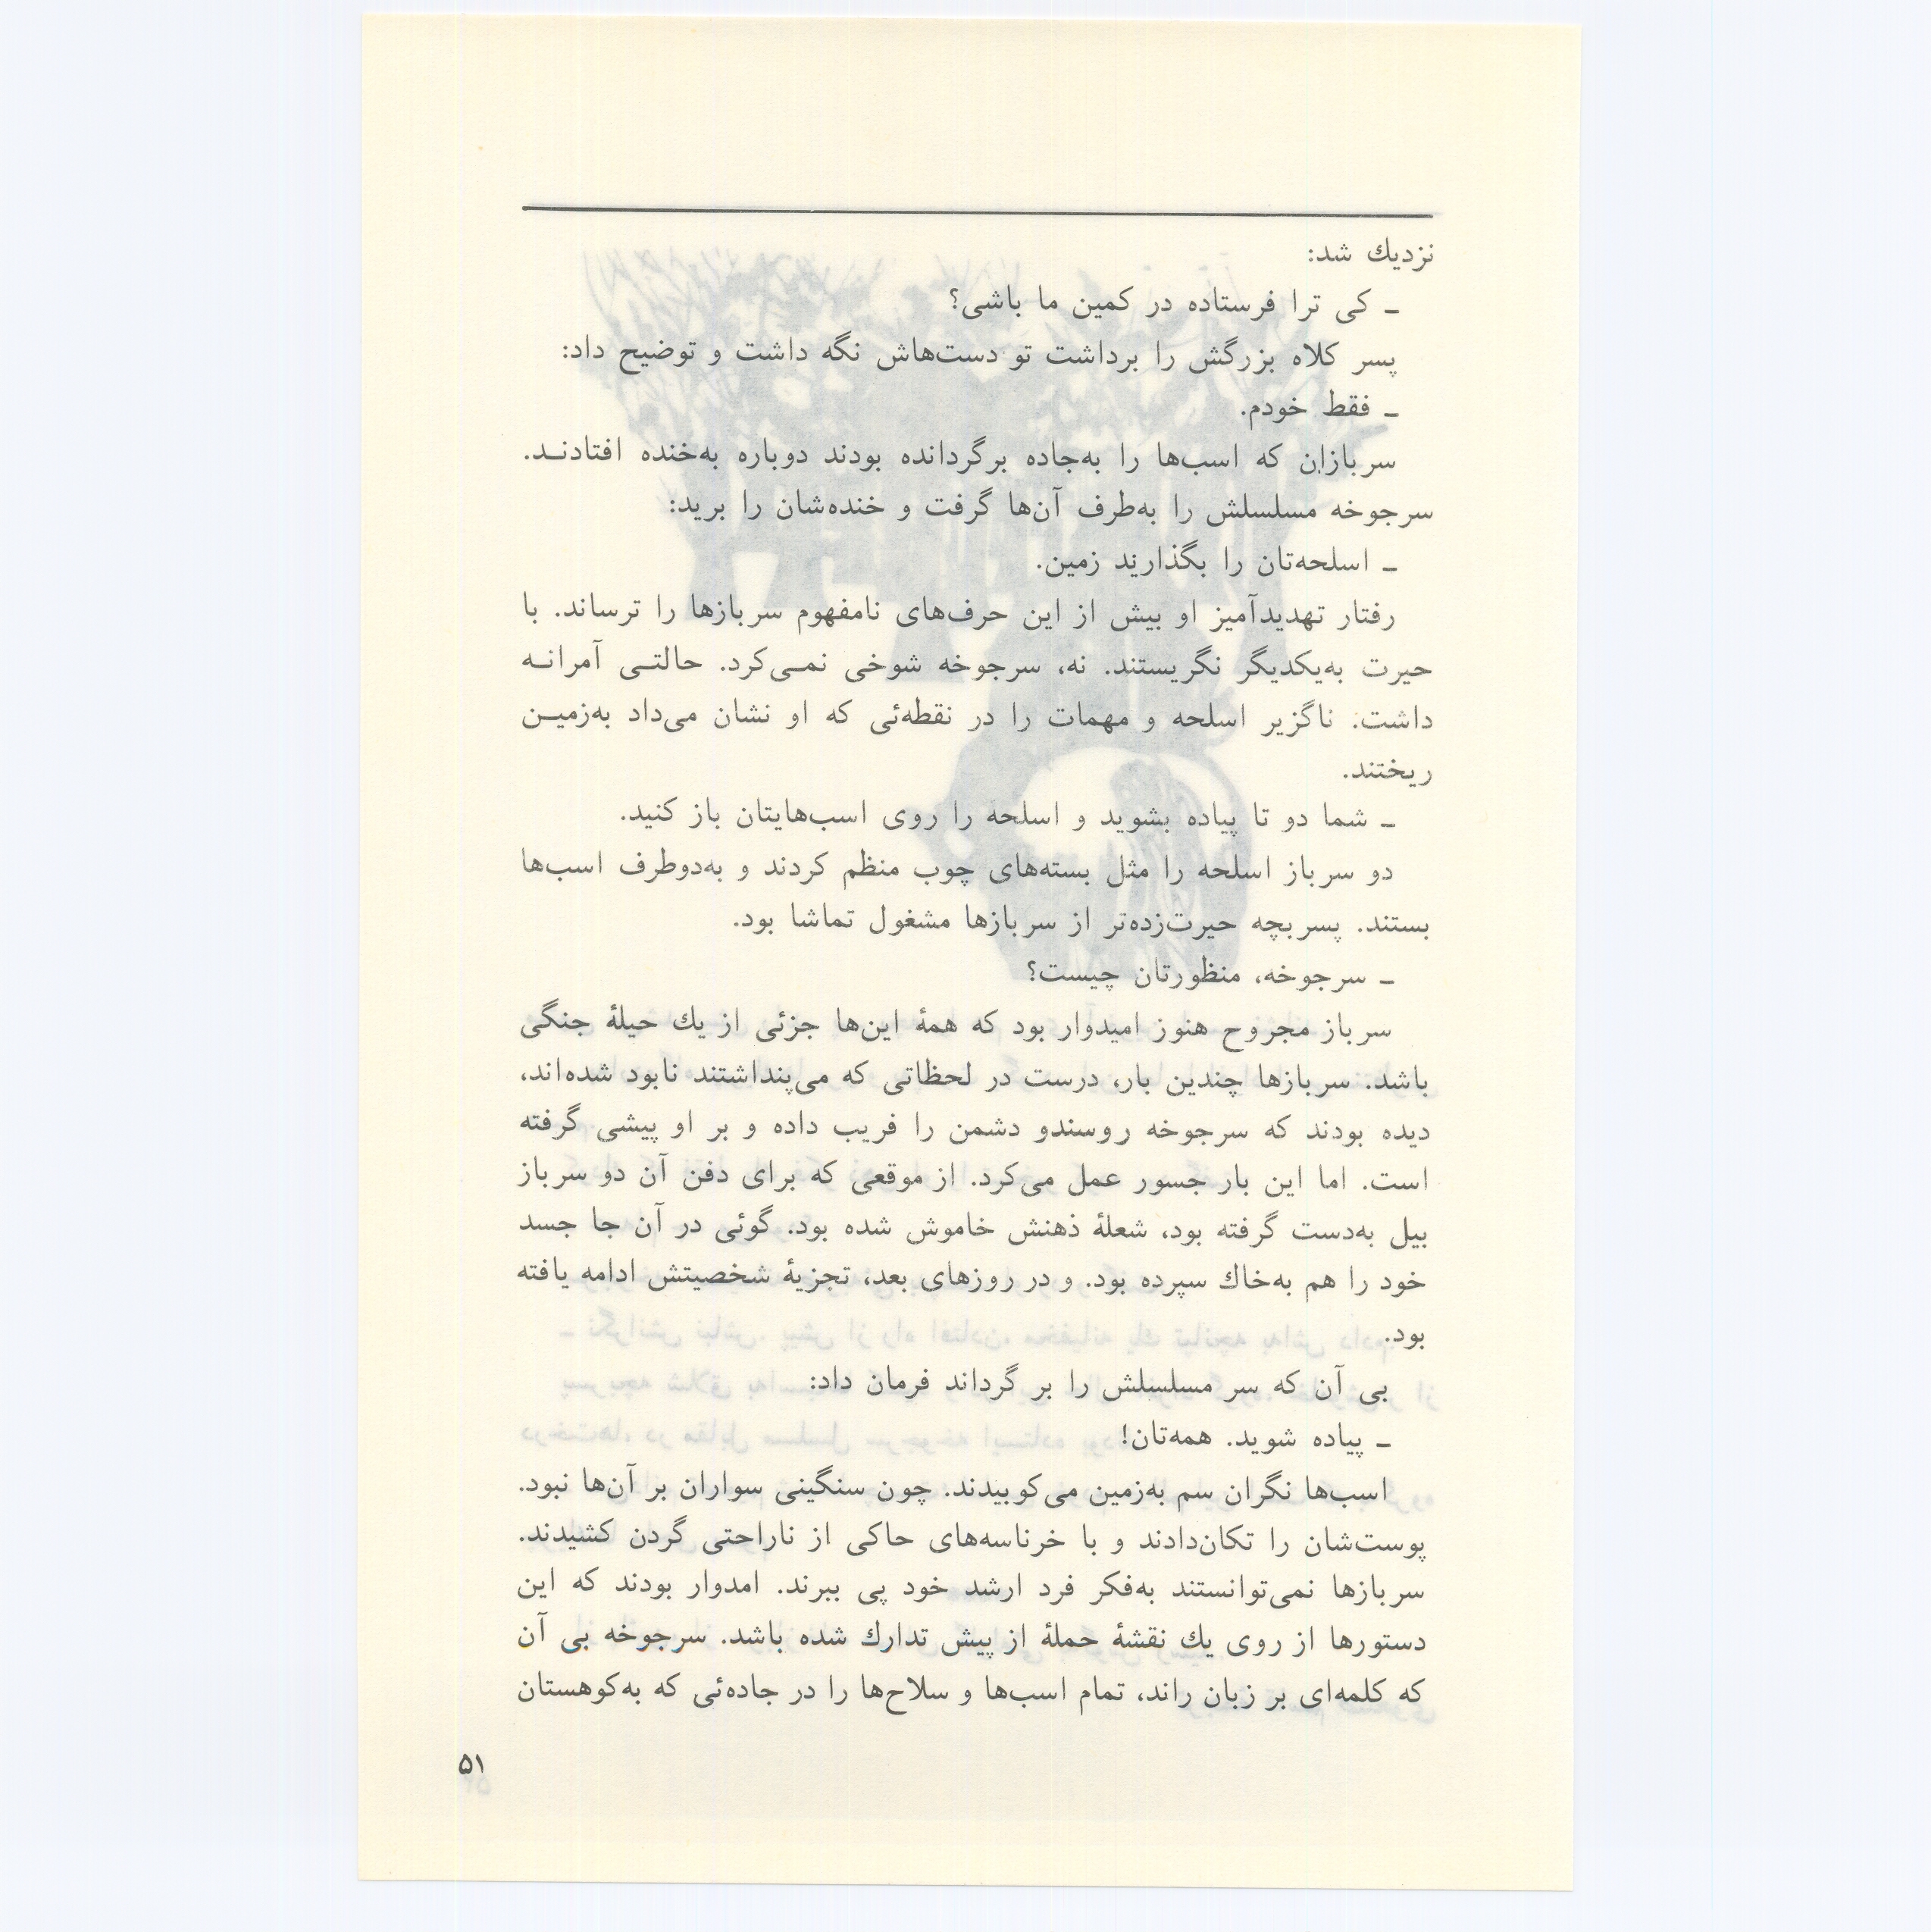 نزدیك شد:
ـ کی ترا فرستاده در کمین ما باشی؟
پسر کلاه بزرگش را برداشت تو دست‌هاش نگه داشت و توضیح داد:
ـ فقط خودم.
سربازان که اسب‌ها را به‌جاده برگردانده بودند دوباره به‌خنده افتادنـد.
سرجوخه مسلسلش را به‌طرف آن‌ها گرفت و خنده‌شان را برید:
ـ اسلحه‌تان را بگذارید زمین.
رفتار تهدیدآمیز او بیش از این حرف‌های نامفهوم سربازها را ترساند. با
حیرت به‌یکدیگر نگریستند. نه، سرجوخه شوخی نمـی‌کرد. حالتـی آمرانـه
داشت. ناگزیر اسلحه و مهمات را در نقطه‌ئی که او نشان می‌داد به‌زمیـن
ریختند.
ـ شما دو تا پیاده بشوید و اسلحه را روی اسب‌هایتان باز کنید.
دو سرباز اسلحه را مثل بسته‌های چوب منظم کردند و به‌دوطرف اسب‌ها
بستند. پسربچه حیرت‌زده‌تر از سربازها مشغول تماشا بود.
ـ سرجوخه، منظورتان چیست؟
سرباز مجروح هنوز امیدوار بود که همهٔ این‌ها جزئی از یك حیلهٔ جنگی
باشد. سربازها چندین بار، درست در لحظاتی که می‌پنداشتند نابود شده‌اند،
دیده بودند که سرجوخه روسندو دشمن را فریب داده و بر او پیشی گرفته
است. اما این بار جسور عمل می‌کرد. از موقعی که برای دفن آن دو سرباز
بیل به‌دست گرفته بود، شعلهٔ ذهنش خاموش شده بود. گوئی در آن جا جسد
خود را هم به‌خاك سپرده بود. و در روزهای بعد، تجزیهٔ شخصیتش ادامه یافته
بود.
بی آن که سر مسلسلش را بر گرداند فرمان داد:
ـ پیاده شوید. همه‌تان!
اسب‌ها نگران سم به‌زمین می‌کوبیدند. چون سنگینی سواران بر آن‌ها نبود.
پوست‌شان را تکان‌دادند و با خرناسه‌های حاکی از ناراحتی گردن کشیدند.
سربازها نمی‌توانستند به‌فکر فرد ارشد خود پی ببرند. امدوار بودند که این
دستورها از روی یك نقشهٔ حملهٔ از پیش تدارك شده باشد. سرجوخه بی آن
که کلمه‌ای بر زبان راند، تمام اسب‌ها و سلاح‌ها را در جاده‌ئی که به‌کوهستان
۵۱